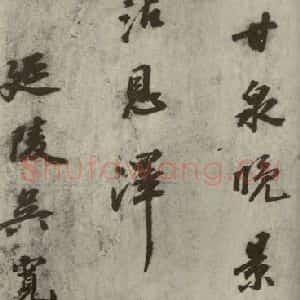 甘泉晚景
沾恩澤
延陵吳寬
Shufawang.cn